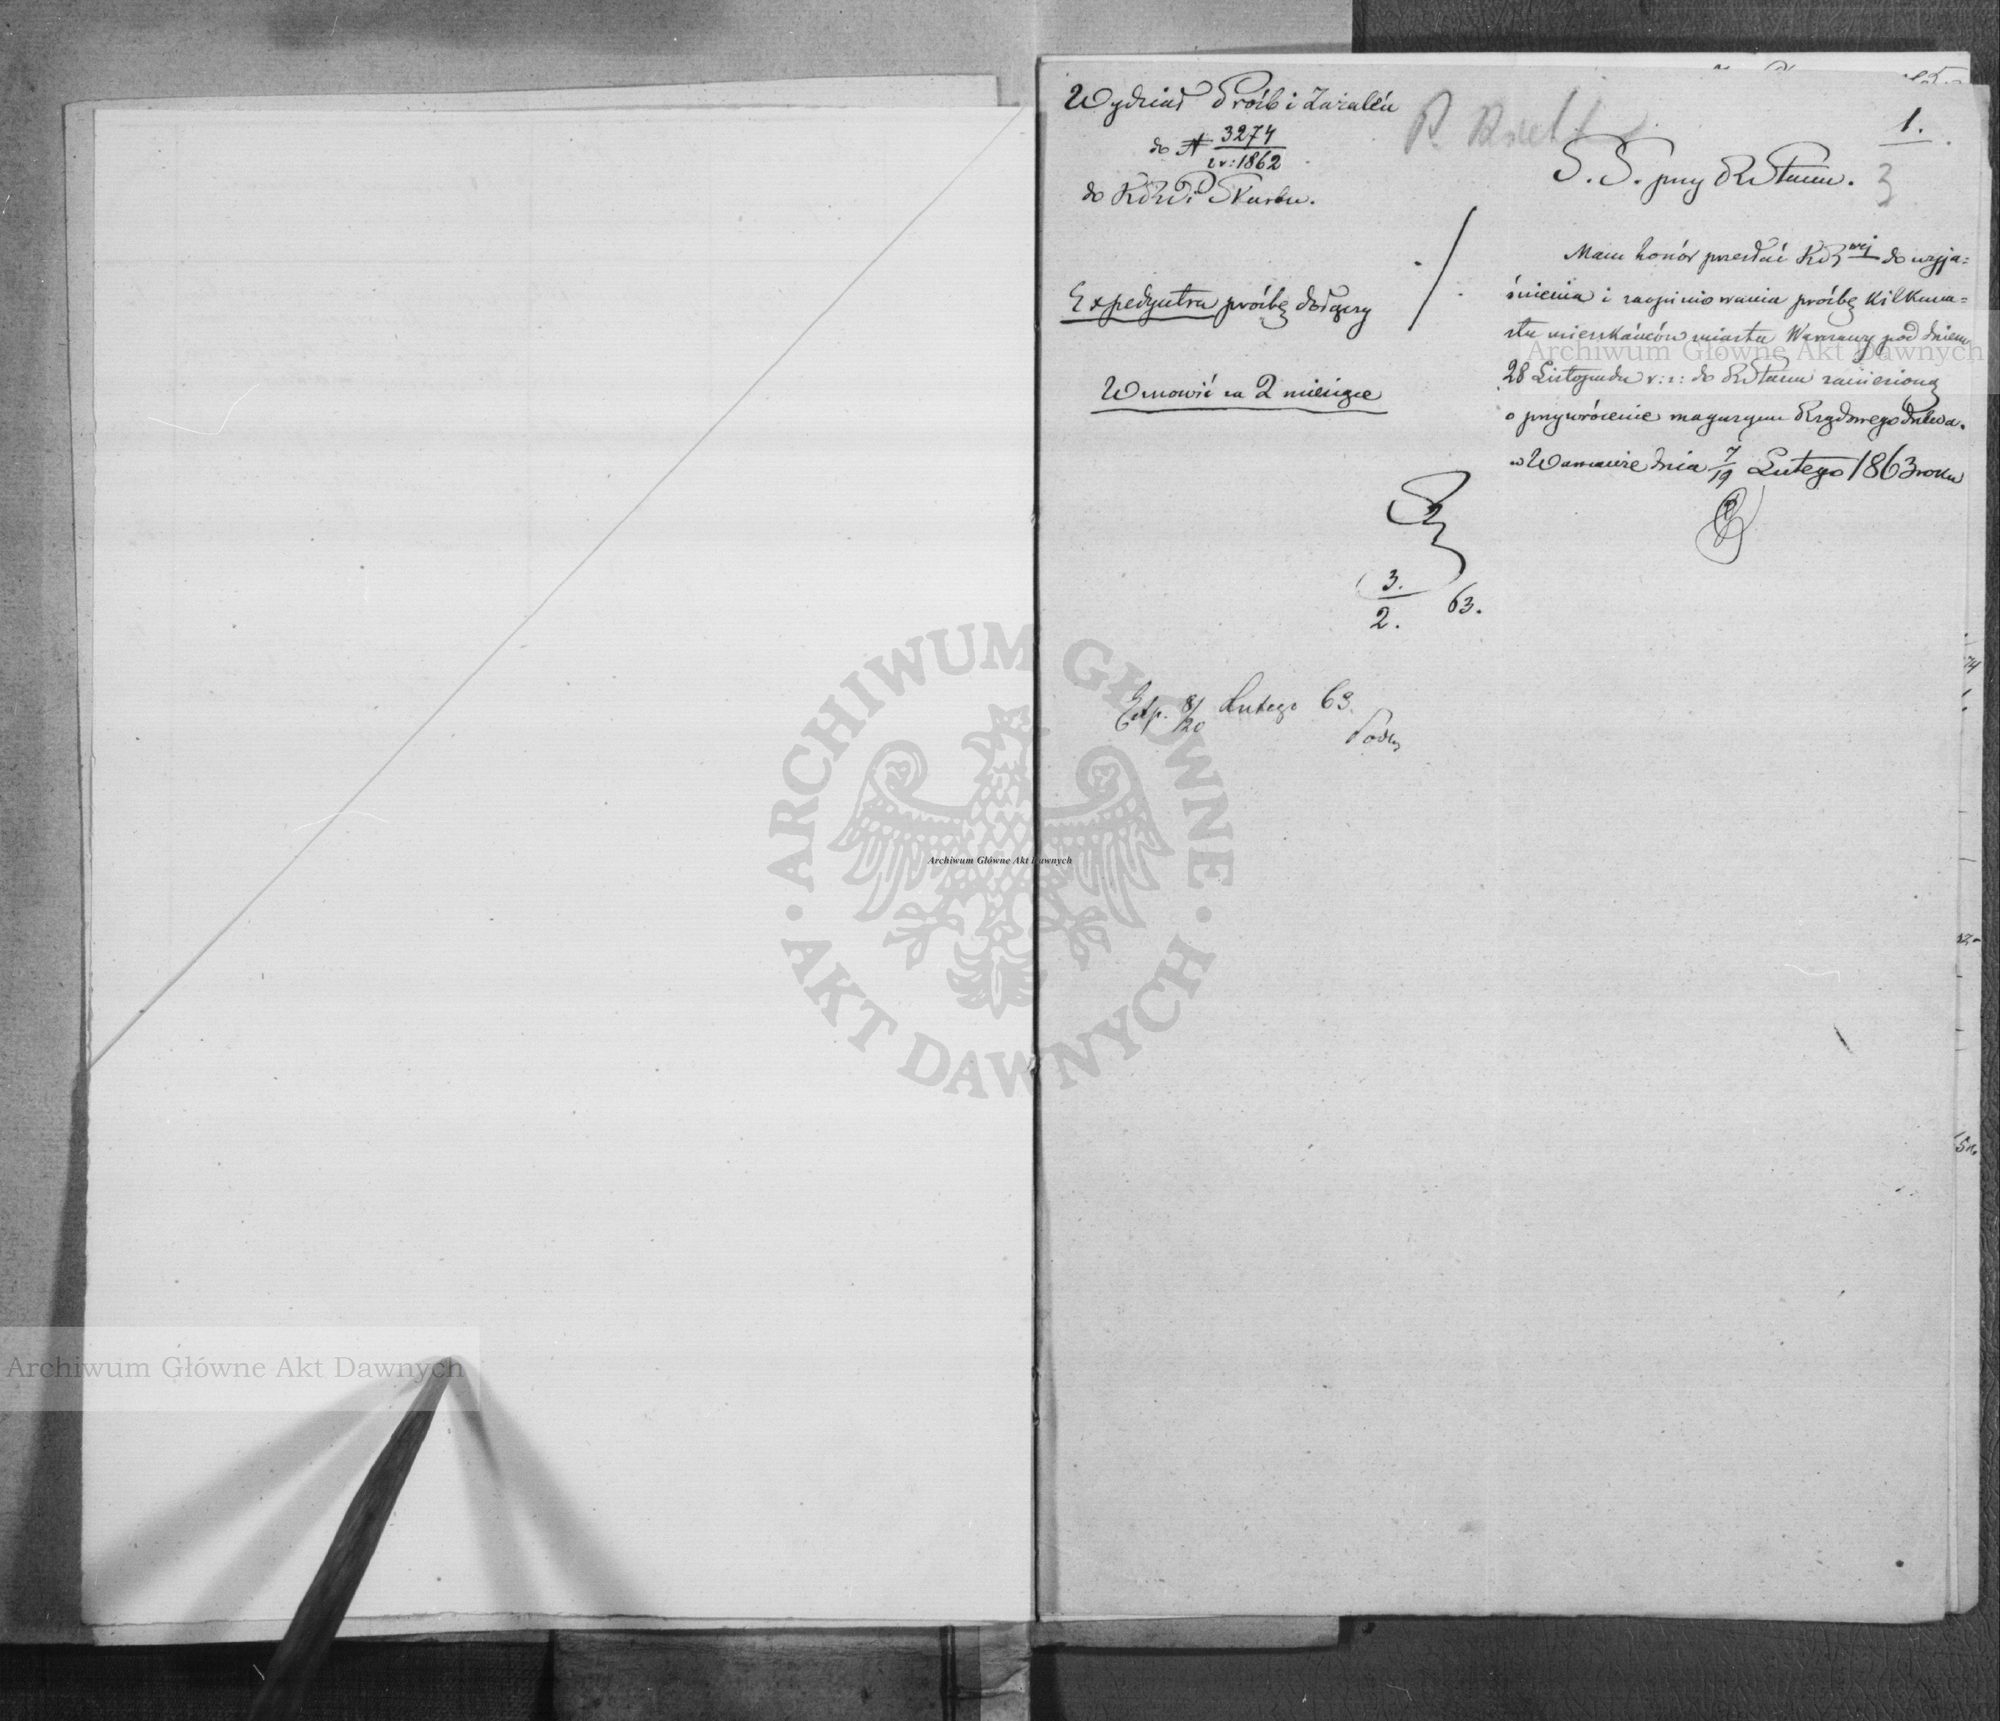 Wydział Próśb i Zażaleń
do N 3274
z r: 1862
do KRPiSkarbu.
Expedytra prośbę dołączy
Wznowić za 2 miesiące
3.
2. 63.
Exp. 8/20 Lutego 63.
1.
3
S. S. przy RStanu.
Mam honor przesłać KRwej do wyja=
śnienia i zaopiniowania prośbę kilkuna=
stu mieszkańców miasta Warszawy pod dniem
28 Listopada r: z: do RStanu zaniesioną
o przywrócenie magazynu Rządowego drzewa.
w Warszawie dnia 7/19 Lutego 1863 roku
Archiwum Główne Akt Dawnych
ARCHIWUM GŁÓWNE
Archiwum Główne Akt Dawnych
AKT DAWNYCH
Archiwum Główne Akt Dawnych